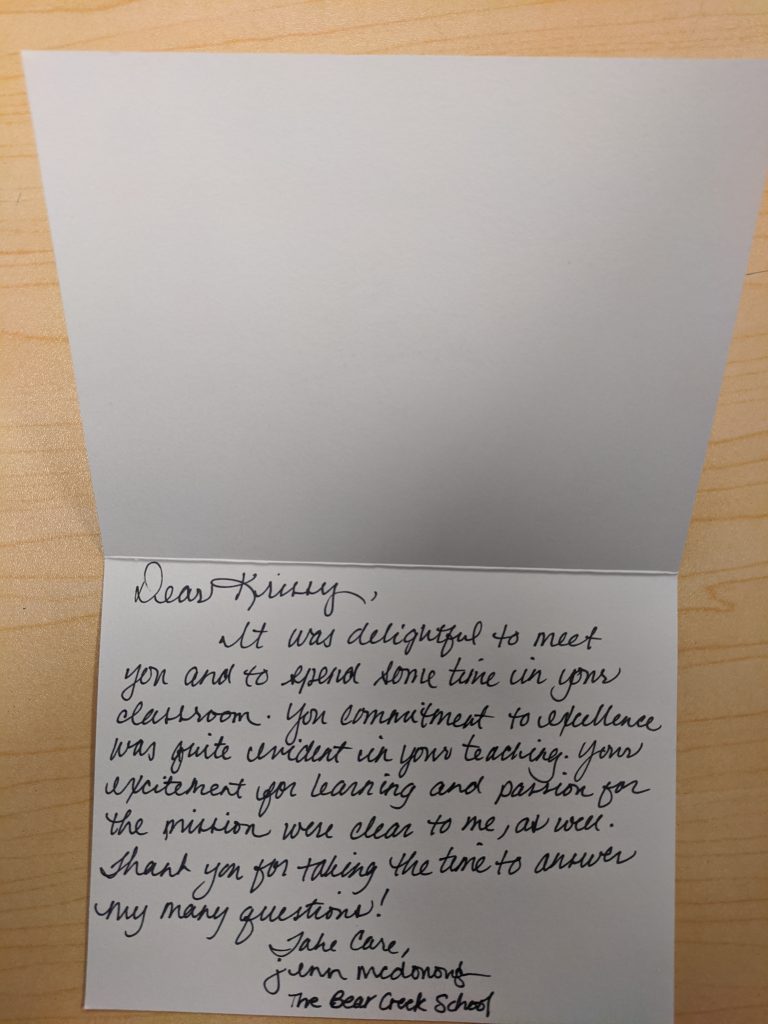 Dear Krissy,
It was delightful to meet
you and to spend some time in your
classroom. You commitment to excellence
was quite evident in your teaching. Your
excitement for learning and passion for
the mission were clear to me, as well.
Thank you for taking the time to answer
my many questions!
Take Care,
jenn mcdonough
The Bear Creek School